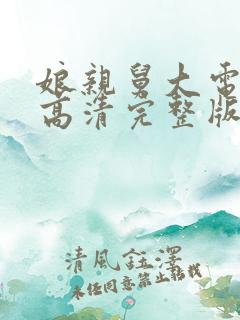 娘親舅大電
高清完整版
清風鈺澤
未经同意禁止转载